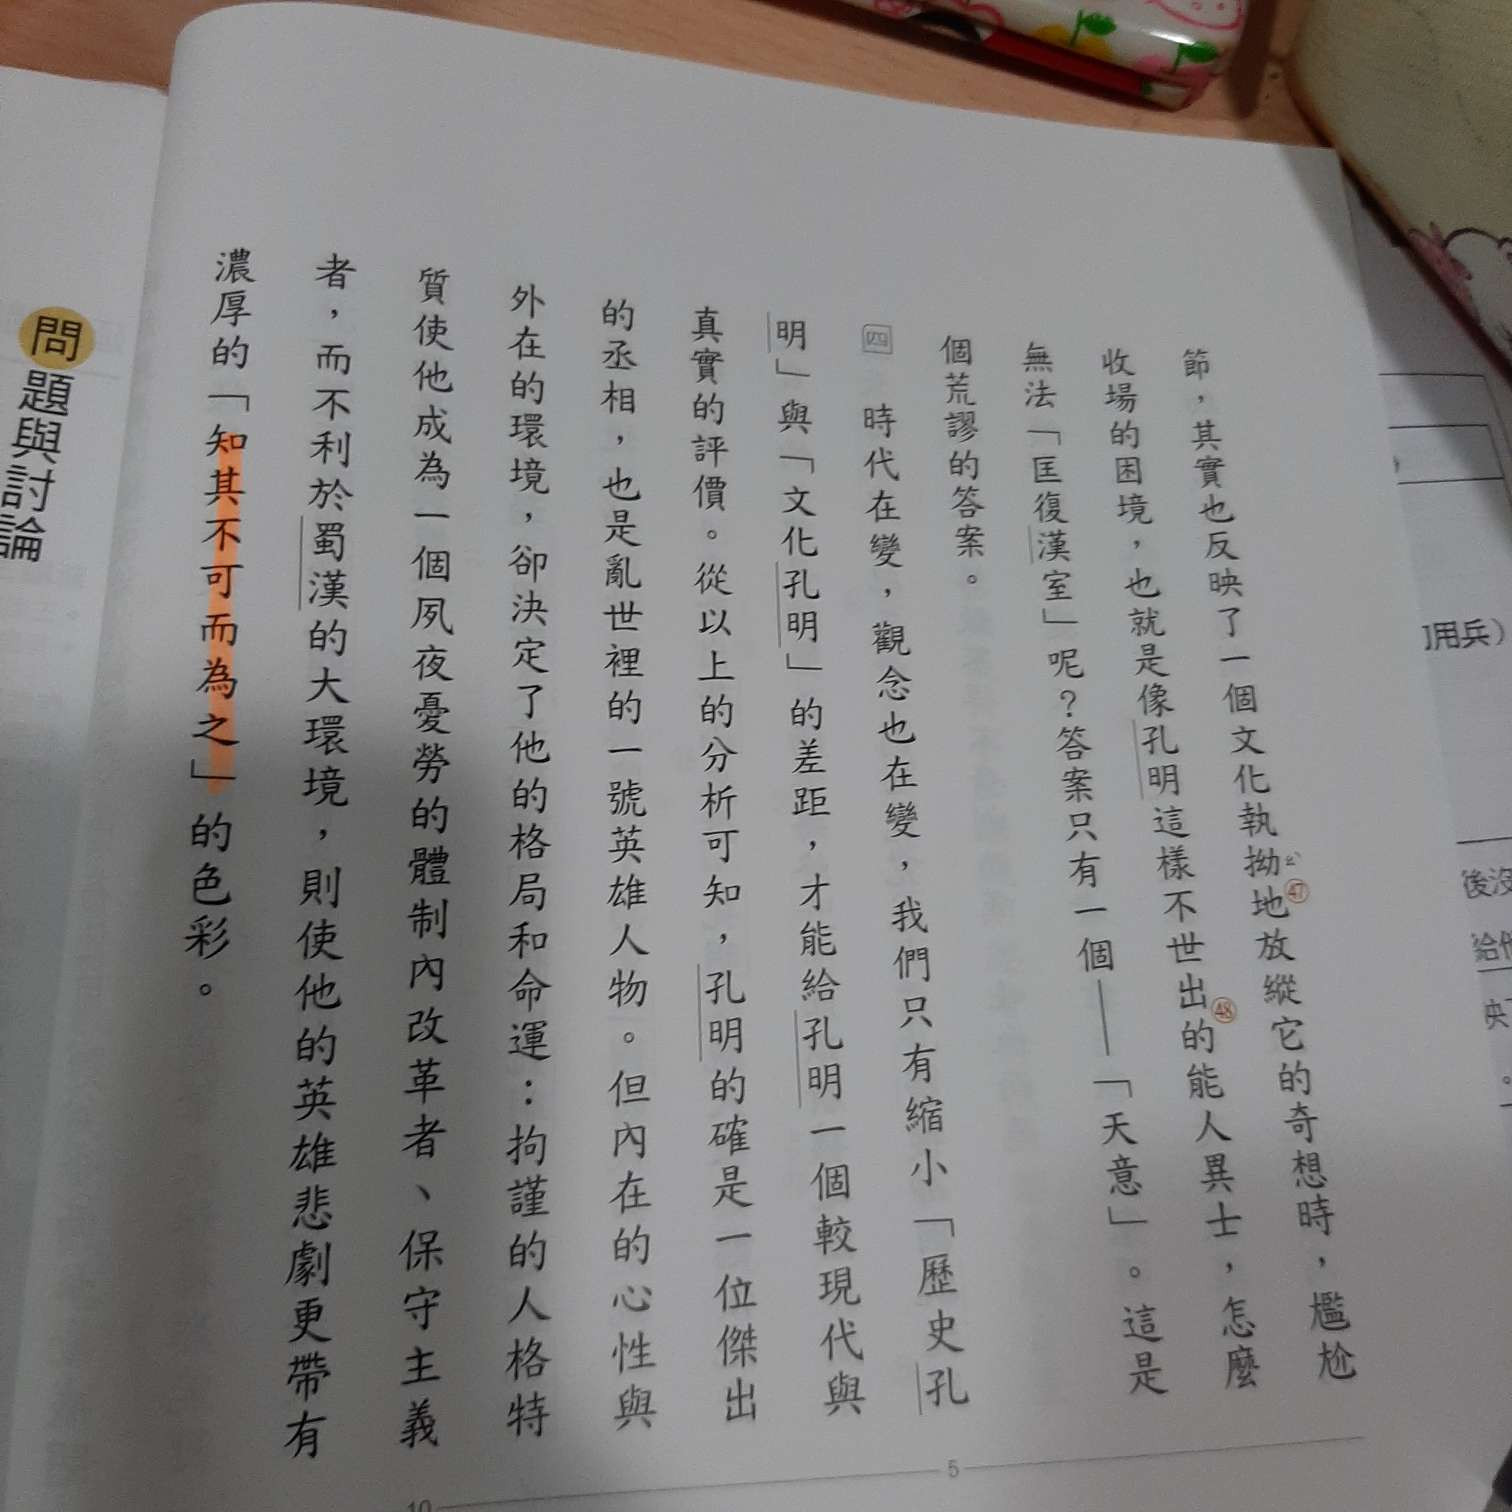 節，其實也反映了一個文化執拗ㄠˋ㊼地放縱它的奇想時，尷尬
收場的困境，也就是像孔明這樣不世出㊽的能人異士，怎麼
無法「匡復漢室」呢？答案只有一個——「天意」。這是
個荒謬的答案。
四　時代在變，觀念也在變，我們只有縮小「歷史孔
明」與「文化孔明」的差距，才能給孔明一個較現代與
真實的評價。從以上的分析可知，孔明的確是一位傑出
的丞相，也是亂世裡的一號英雄人物。但內在的心性與
外在的環境，卻決定了他的格局和命運：拘謹的人格特
質使他成為一個夙夜憂勞的體制內改革者、保守主義
者，而不利於蜀漢的大環境，則使他的英雄悲劇更帶有
濃厚的「知其不可而為之」的色彩。
5
10
問題與討論
用兵）
後沒
給他